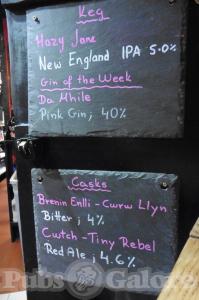 Keg
Hazy Jane
New England IPA 5.0%
Gin of the Week
Da Mhile
Pink Gin; 40%
Casks
Brenin Enlli - Cwrw Llyn
Bitter; 4%
Cwtch - Tiny Rebel
Red Ale; 4.6%
Pubs Galore